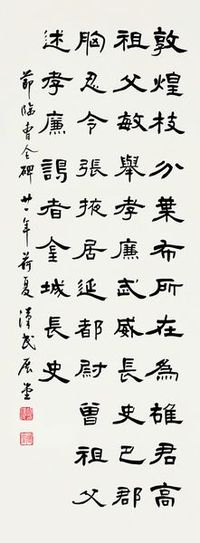 敦煌枝分葉布所在為雄君高
祖父敏舉孝廉武威長史巴郡
朐忍令張掖居延都尉曾祖父
述孝廉謁者金城長史
節臨曹全碑 廿一年荷夏 漢民展堂